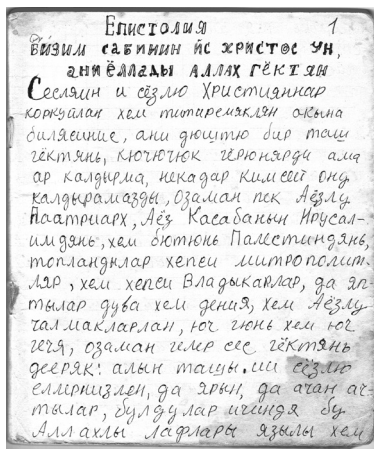 Епистолия 1
Бизим сабинин йс христос ун,
ани ёллады аллах гёктян
Сесляин и сёзлю Християннар
коркуйлан хем титиремяклян окына
билясиние, ани дюштю бир таш
гёктянь, кючючюк гёрюнярди ама
ар калдырма, некадар кимсей ону
калдырамазды, озаман пек Аёзлу
Паатриарх, Аёз Касабанын Ирусал-
имдянь, хем бютюнь Палестиндянь,
топландылар хепси митрополит-
ляр, хем хепси Владыкарлар, да яп-
тылар дува хем дения, хем Аёзлу
чалмакларлан, юч гюнь хем юч
гечя, озаман гелер сес гёктянь
дееряк: алын ташы
еллернизлен, да ярын, да ачан ач-
тылар, булдулар ичиндя бу
Аллахлы лафлары языллы хем